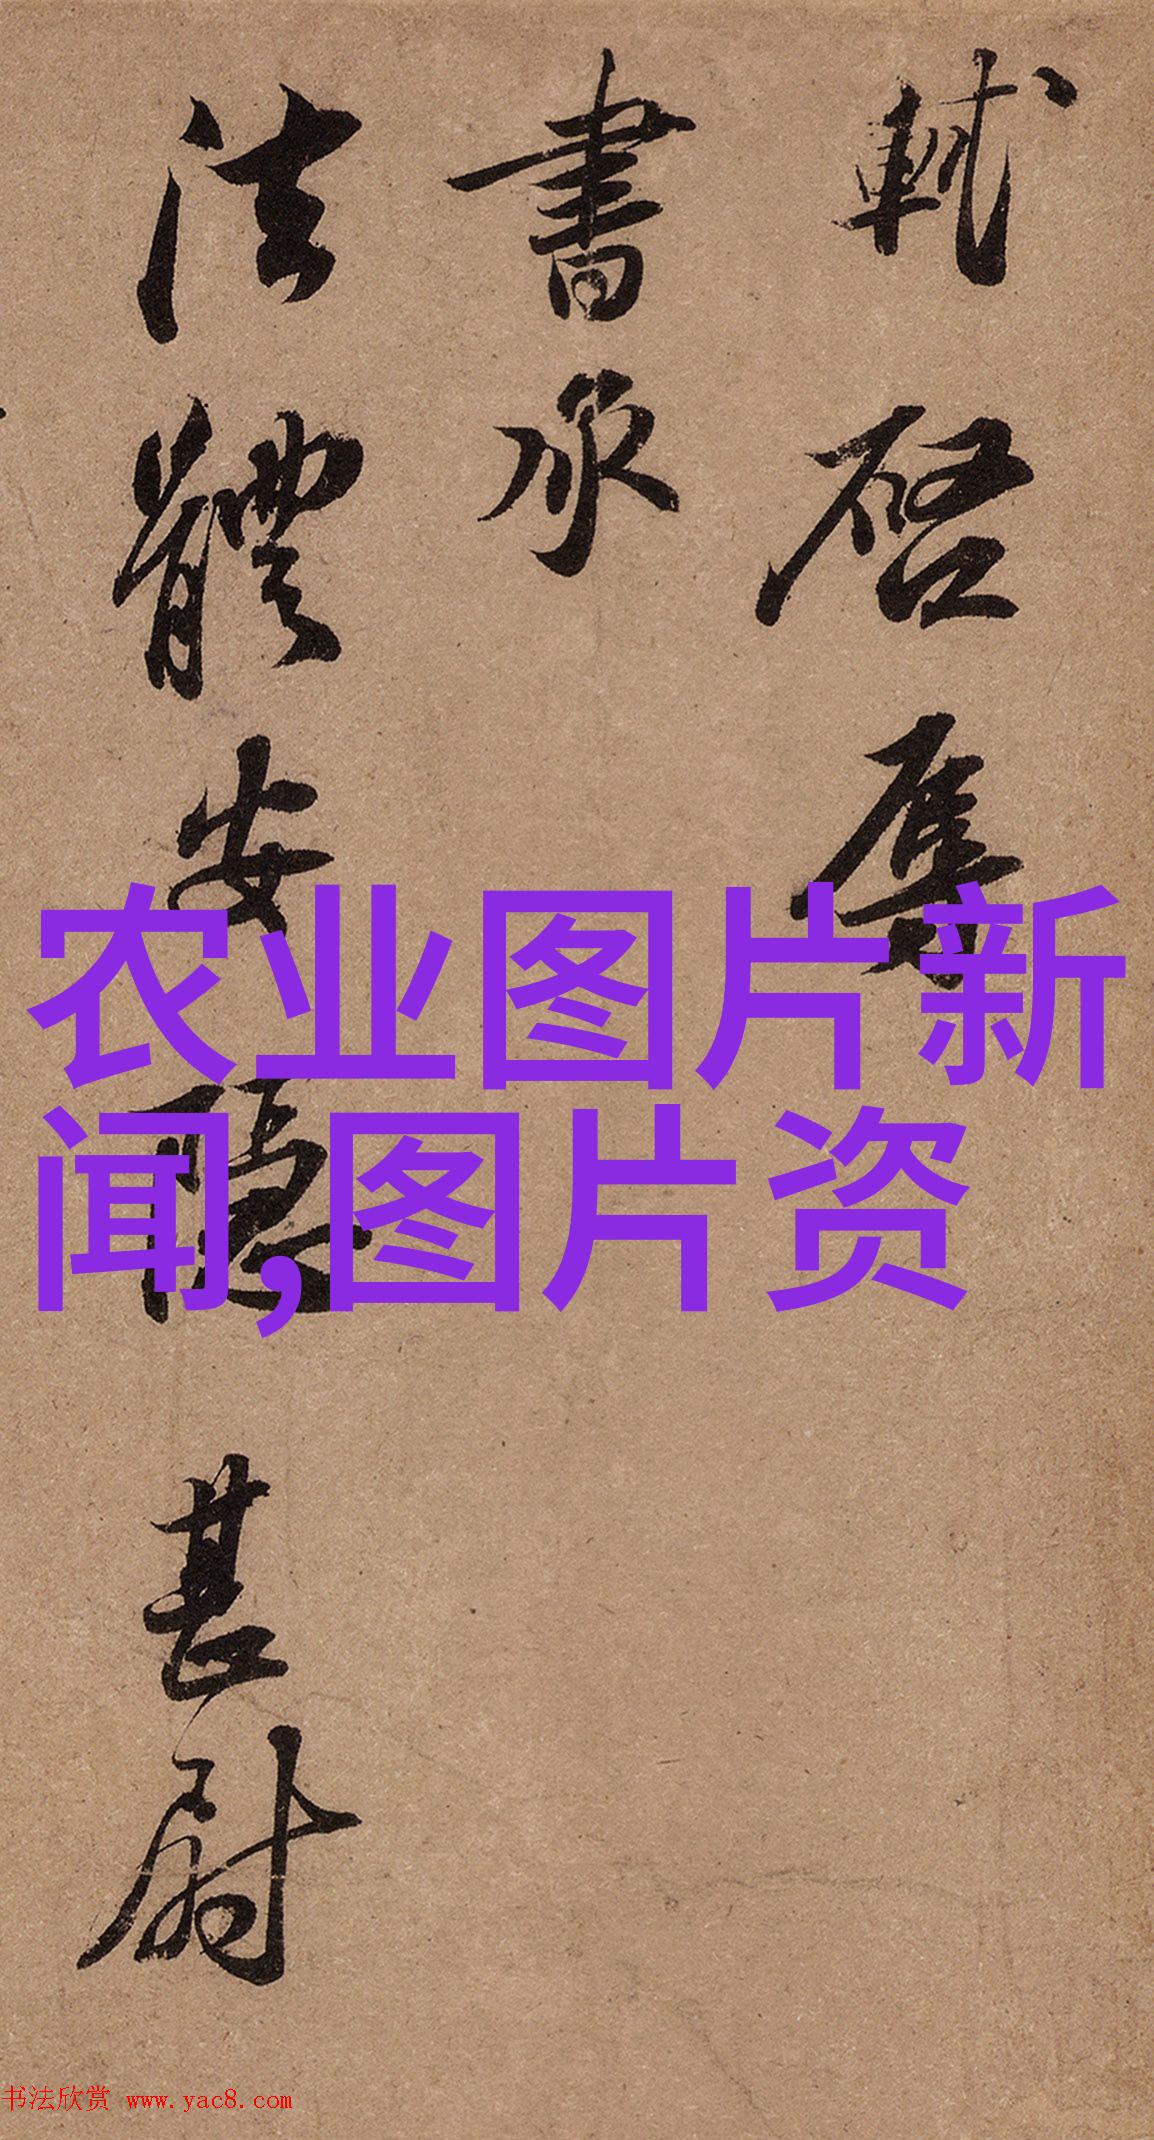 軾啓辱
書承
法體安隱甚尉
农业图片新
闻,图片资
书法欣赏 www.yac8.com